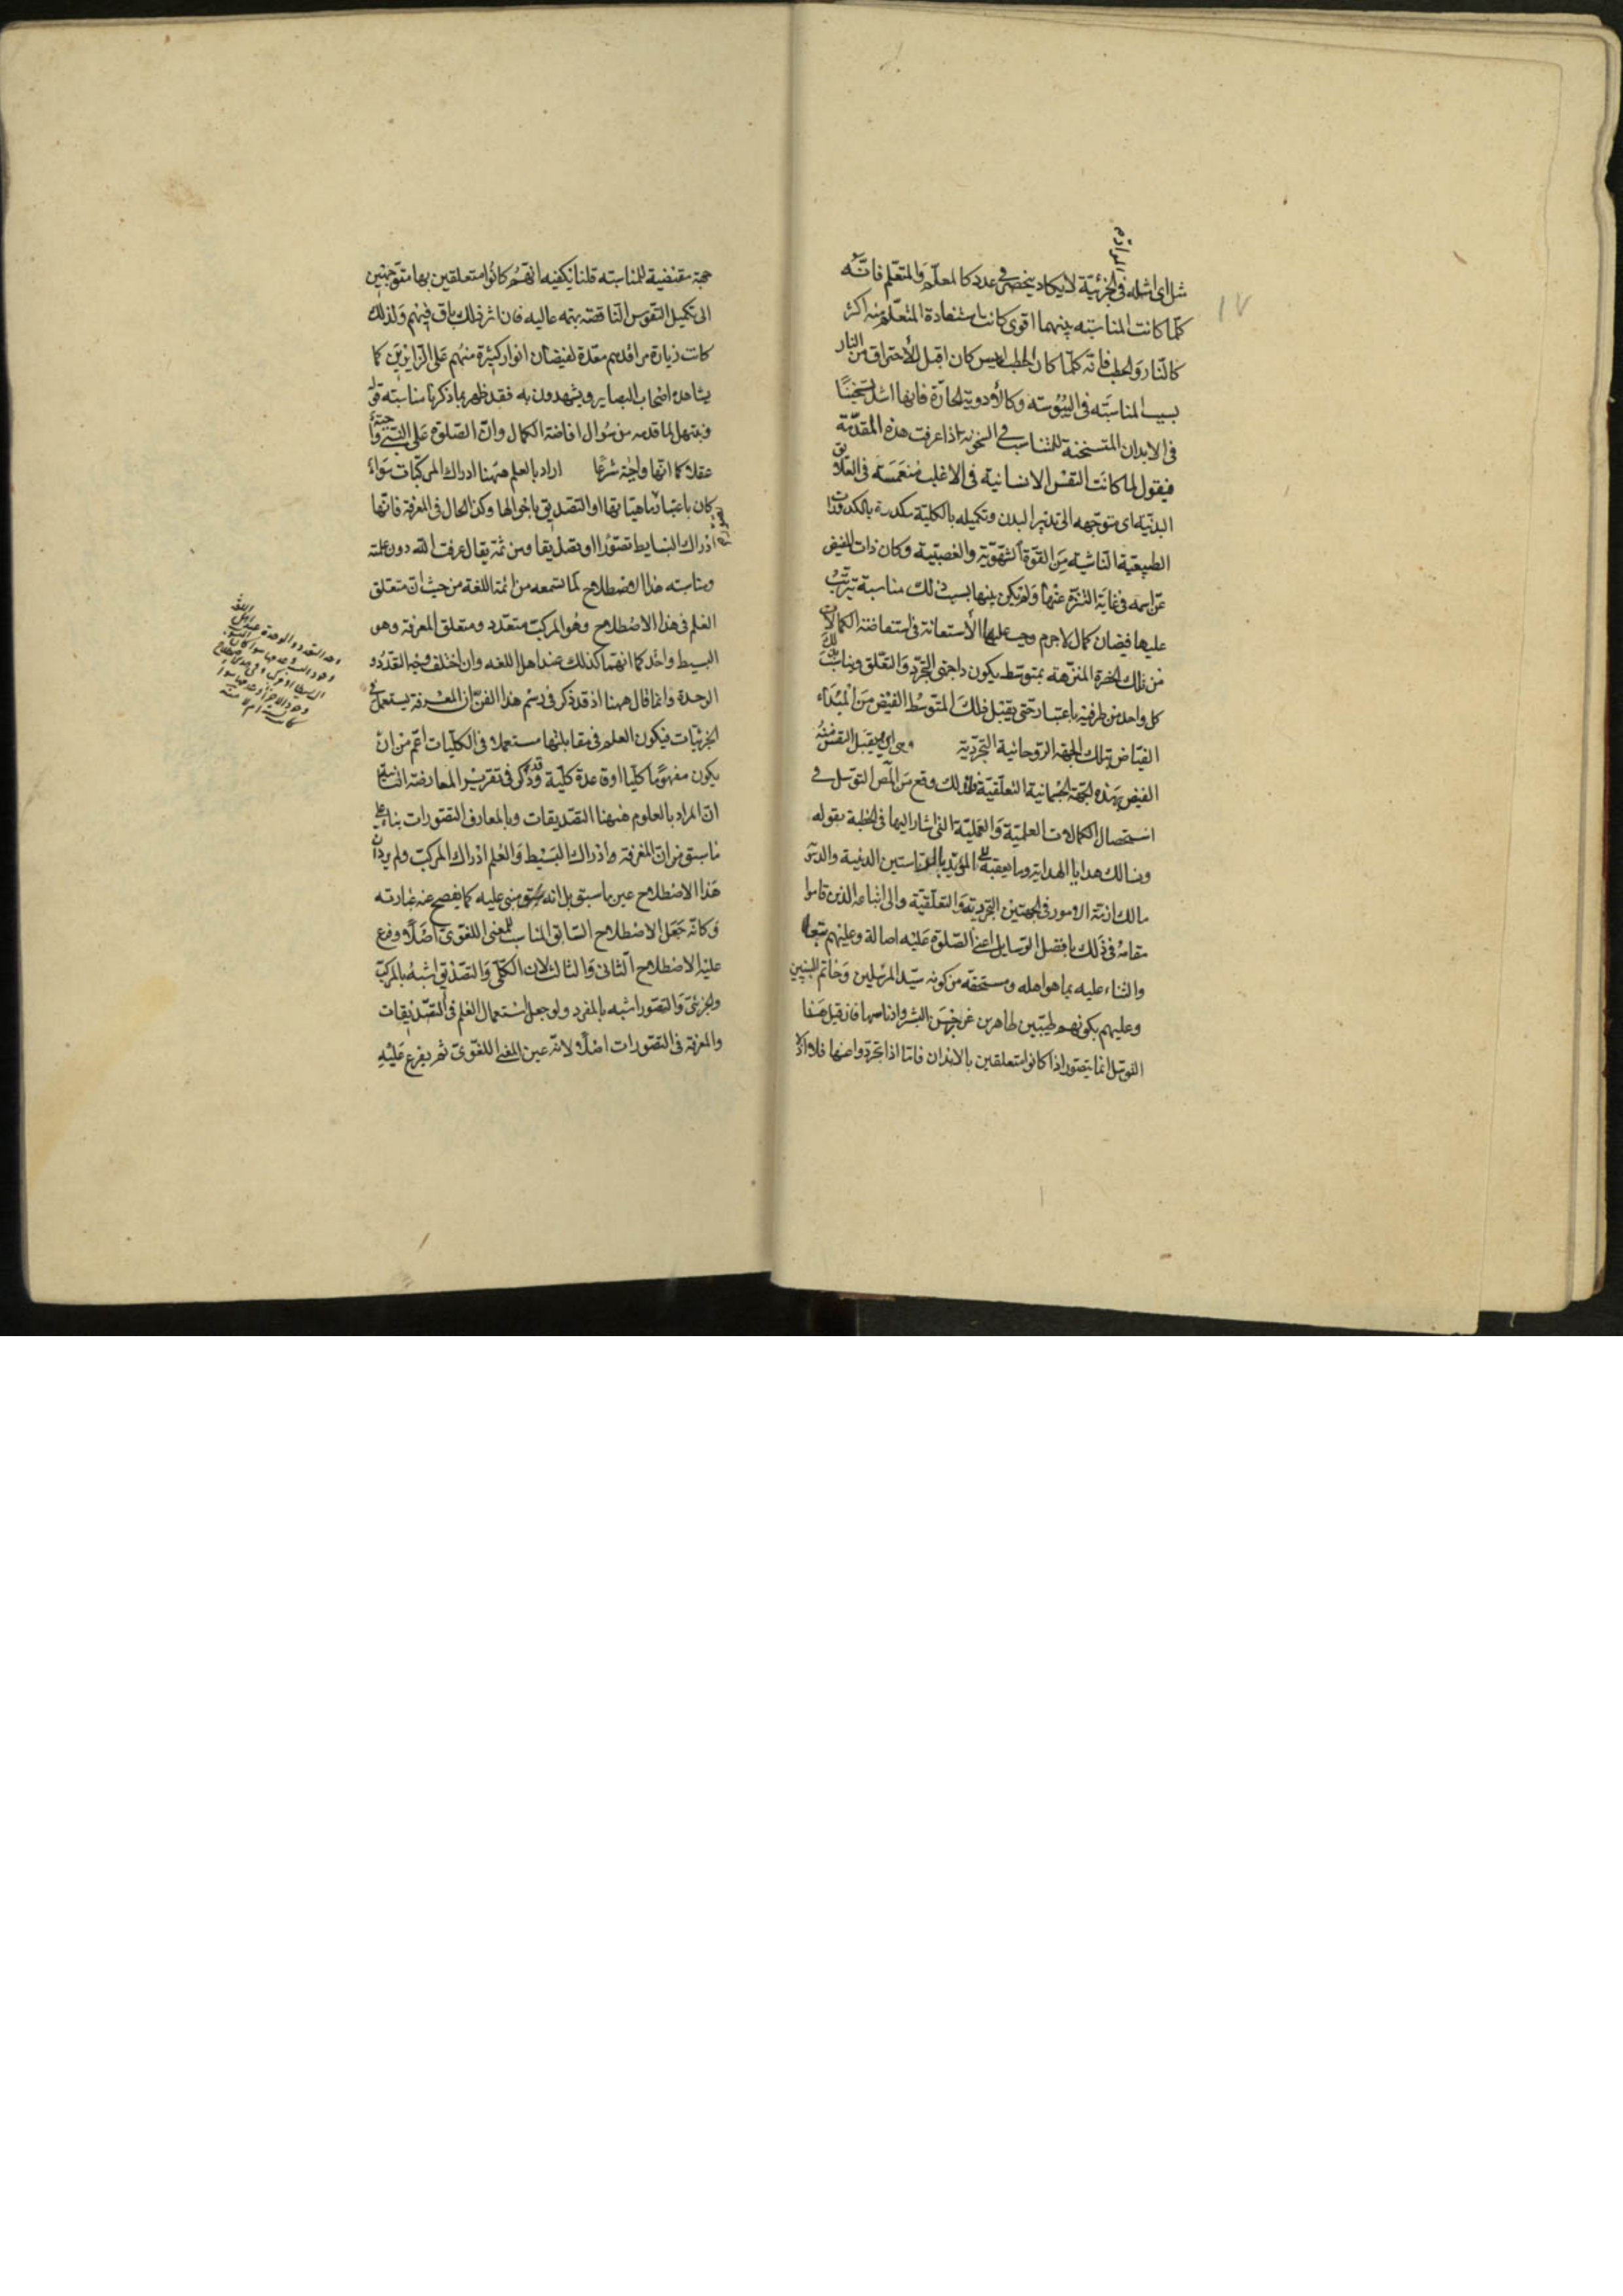 المواد منه
مثل اى امثله فى الجزئية لا يكاد ينحصر فى عدد كالمعلم والمتعلم فانه
كلما كانت المناسبة بينهما اقوى كانت استفادة المتعلم منه اكثر
كالنار والحطب فانه كلما كان الحطب ايبس كان اقبل للاحتراق من النار
بسبب المناسبة فى اليبوسة وكالادوية الحارة فانها اشد تسخينا
فى الابدان المتسخنة للتناسب فى السخونة اذا عرفت هذه المقدمة
فيقول لما كانت النفس الانسانية فى الاغلب منغمسة فى العلائق
البدنية اى متوجهه الى تدبير البدن وتكميله بالكلية مكدرة بالكدورات
الطبيعية الناشية من القوة الشهوية والغضبية وكان ذات المفيض
عز اسمه فى غاية التنزه عنها ولم يكن بينها بسبب ذلك مناسبة يترتب
عليها فيضان كمال لا جرم وجب عليها الاستعانة فى استفاضة الكمالات
من تلك الحضرة المنزهة بمتوسط يكون ذا جهتى التجرد والتعلق ويناسب بذلك
كل واحد من طرفيه باعتبار حتى يقبل ذلك المتوسط الفيض من المبداء
الفياض بتلك الجهة الروحانية التجردية ويقبل النفس منه
الفيض بهذه الجهة الجسمانية التعلقية فلذلك وقع من المص التوسل فى
استحصال الكمالات العلمية والعملية التى اشار اليها فى الخطبة بقوله
ونسالك هدايا الهداية وما يعقبه الى المؤيد بالرياستين الدينية والدنيوية
مالك ازمة الامور فى الجهتين التجردية والتعلقية والى اتباعه الذين قاموا
مقامه فى ذلك بافضل الوسايل اعنى الصلوة عليه اصالة وعليهم تبعا
والثناء عليه بما هو اهله ومستحقه من كونه سيد المرسلين وخاتم النبيين
وعليهم بكونهم طيبين طاهرين عن رجس البشر وادناسها فان قيل هذا
التوسل انما يتصور اذا كانوا متعلقين بالابدان فاما اذا تجردوا عنها فلا اذ لا
جهة مقتضية للمناسبة قلنا يكفيه انهم كانوا متعلقين بها متوجهين
الى تكميل النفوس الناقصة بهمة عالية فان اثر ذلك باق فيهم ولذلك
كانت زيارة مراقدهم معدة لفيضان انوار كثيرة منهم على الزايرين كما
يشاهده اصحاب البصاير ويشهدون به فقد ظهر بما ذكرنا مناسبة قوله
ونبتهل لما قدمه من سوال افاضة الكمال وان الصلوة على النبى واجبة
عقلا كما انها واجبة شرعا اراد بالعلم ههنا ادراك المركبات سواء
كان باعتبار ماهياتها او التصديق باحوالها وكذا الحال فى المعرفة فانها
ادراك البسايط تصورا او تصديقا ومن ثمة يقال عرفت الله دون علمته
ومناسبة هذا الاصطلاح لما نسمعه من ائمة اللغة من حيث ان متعلق
العلم فى هذا الاصطلاح وهو المركب متعدد ومتعلق المعرفة وهو
البسيط واحد كما انهما كذلك عند اهل اللغه وان اختلف وجه التعدد و
الوحدة وانما قال ههنا اذ قد ذكر فى رسم هذا الفن ان المعرفة يستعمل فى
الجزئيات فيكون العلم فى مقابلتها مستعملا فى الكليات اعم من ان
يكون مفهوما كليا او قاعدة كلية وقد ذكر فى تقرير المعارضة
ان المراد بالعلوم ههنا التصديقات وبالمعارف التصورات بناء على
ما سبق من ان المعرفة ادراك البسيط والعلم ادراك المركب ولم يرد ان
هذا الاصطلاح عين ما سبق بل انه مبنى عليه كما يفصح عنه عبارته
وكانه جعل الاصطلاح السابق المناسب للمعنى اللغوى اصلا وفرع
عليه الاصطلاح الثانى والثالث لان الكلى والتصديق اشبه بالمركب
والجزئى والتصور اشبه بالمفرد ولو جعل استعمال العلم فى التصديقات
والمعرفة فى التصورات اصلا لانه عين المعنى اللغوى ثم يفرع عليه
وجه التعدد والوحدة عند اهل اللغة